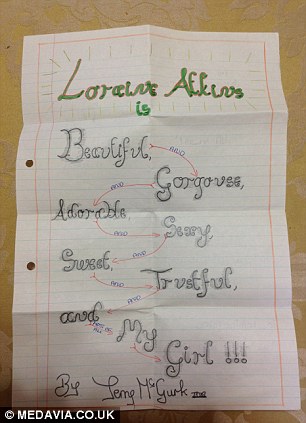 Loraine Atkins
is
Beautiful,
AND
Gorgouse,
AND
Adorable,
AND
Sexy,
AND
Sweet,
AND
Trustful,
AND
and
My
Girl !!!
By Terry McGurk
© MEDAVIA.CO.UK